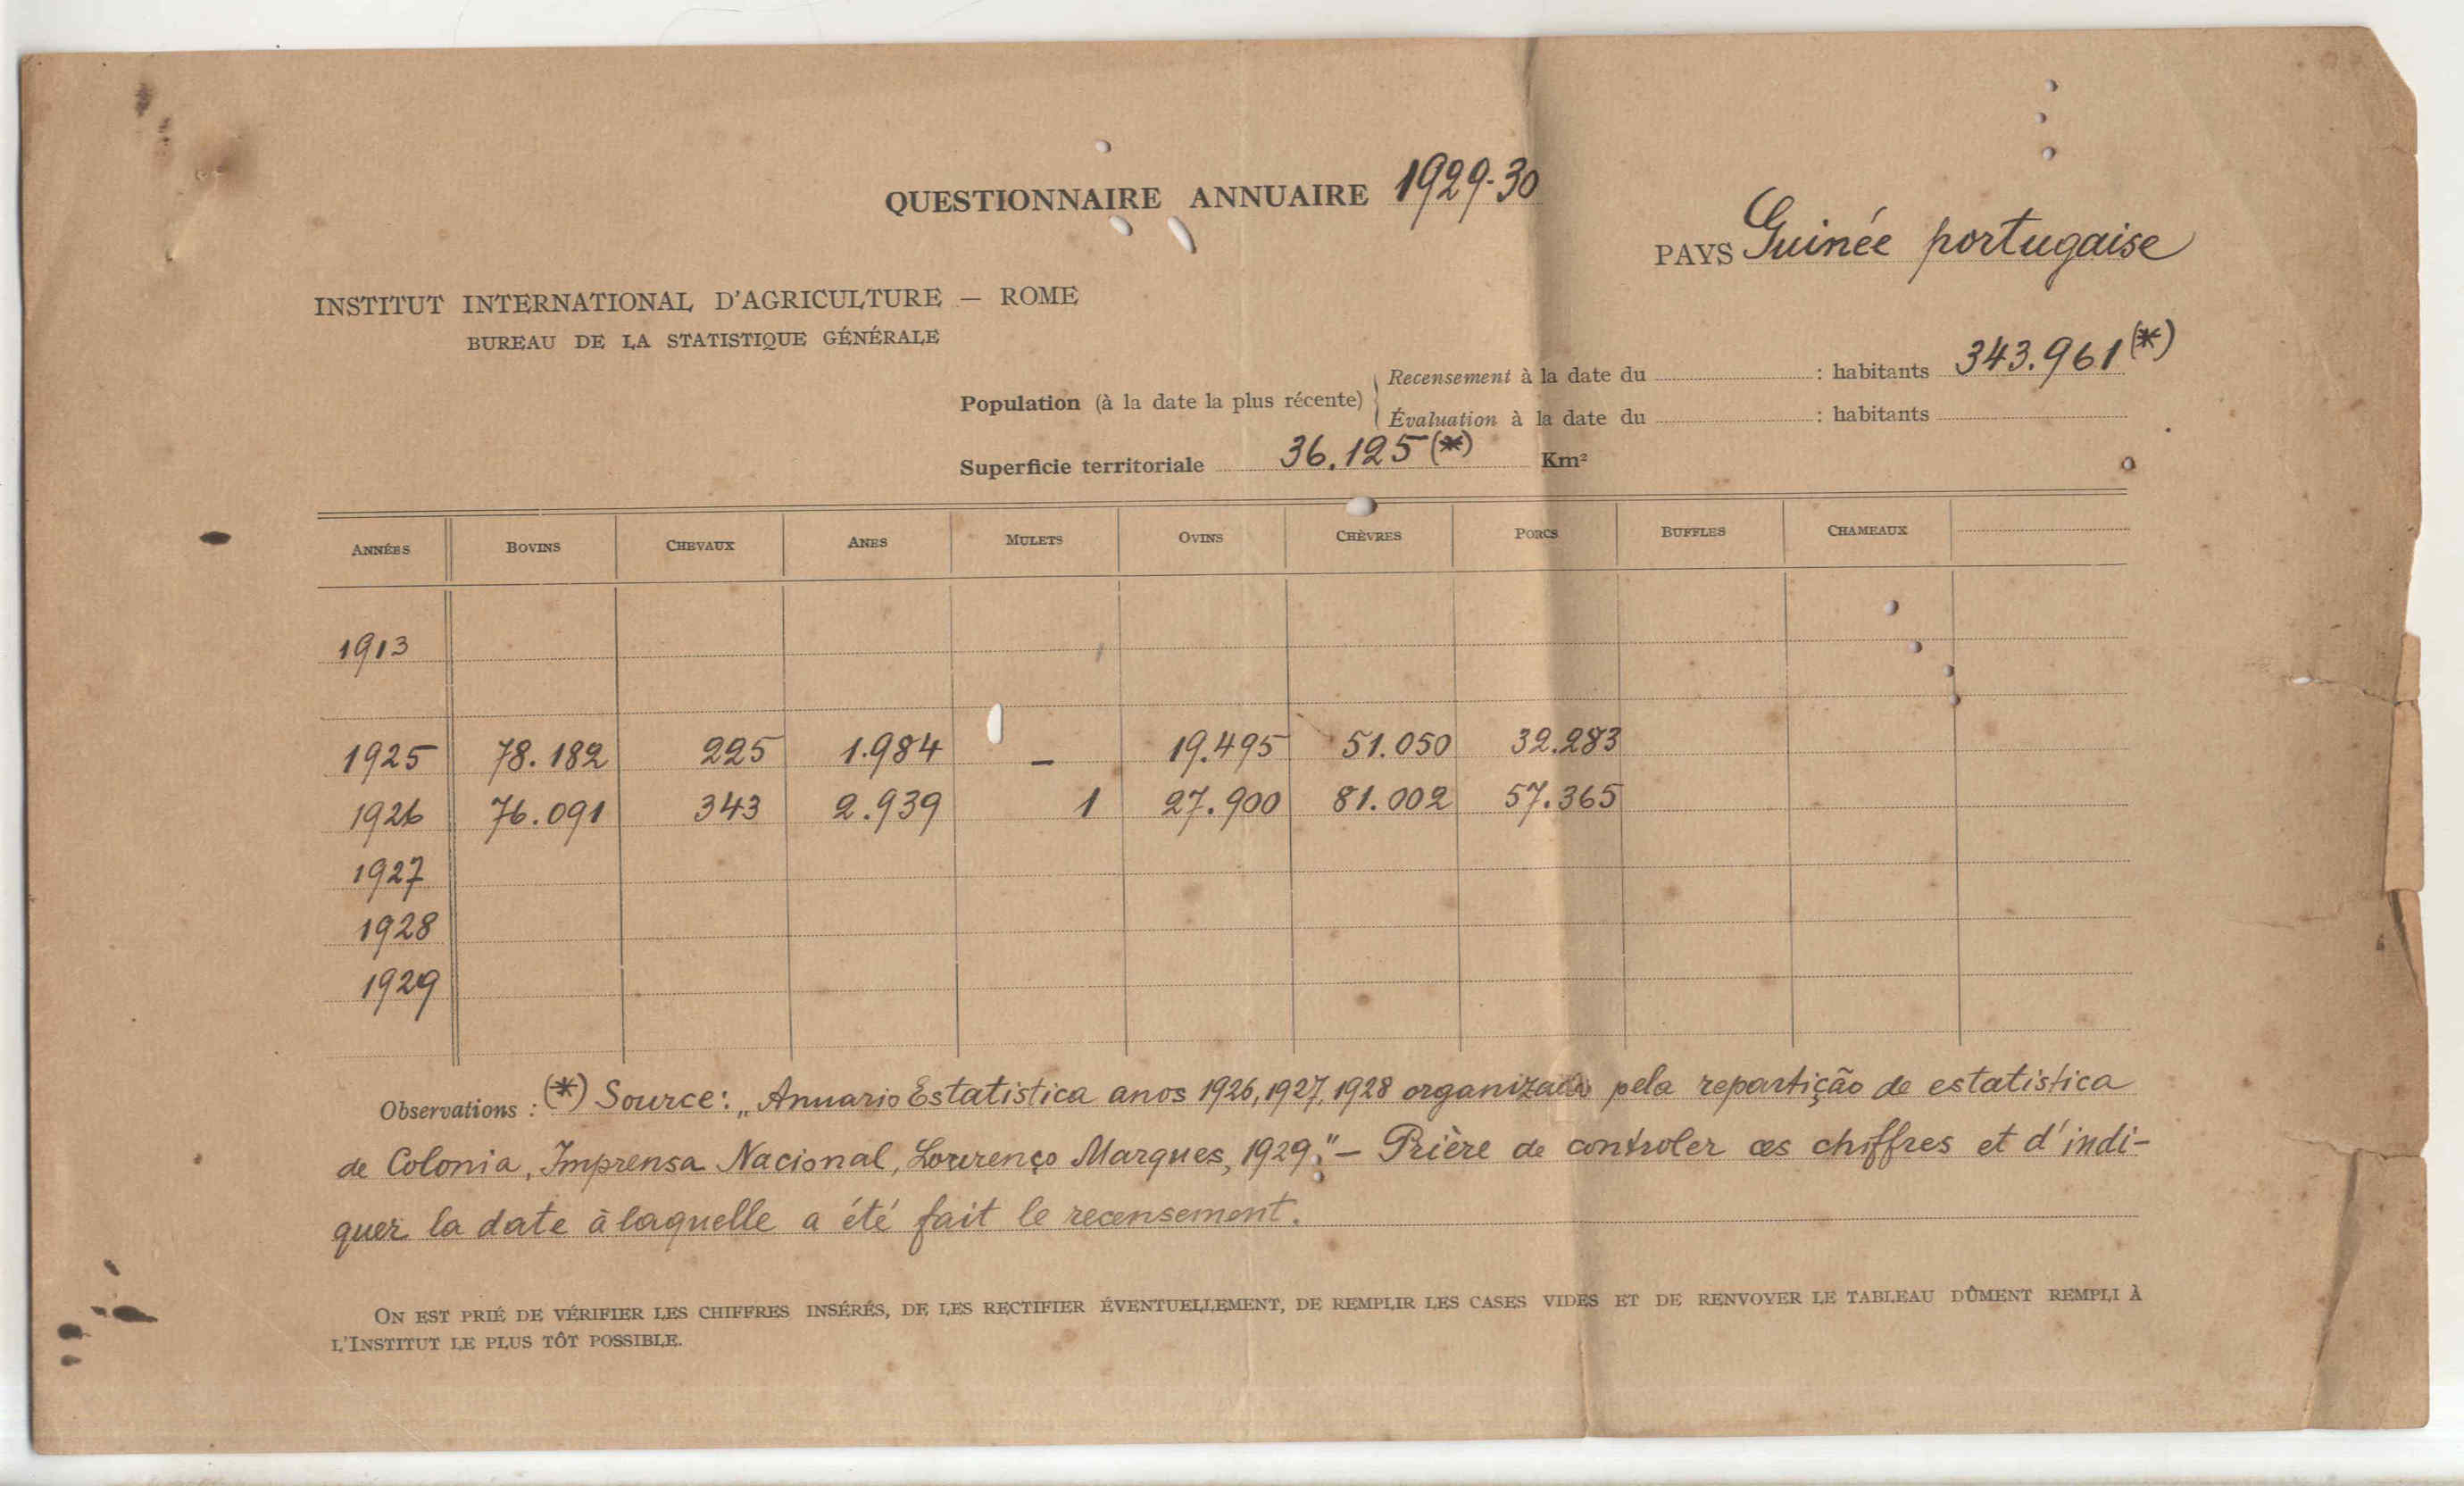 QUESTIONNAIRE ANNUAIRE 1929-30
PAYS Guinée portugaise
INSTITUT INTERNATIONAL D'AGRICULTURE — ROME
BUREAU DE LA STATISTIQUE GÉNÉRALE
Population (à la date la plus récente)
Recensement à la date du : habitants 343.961 (*)
Évaluation à la date du : habitants
Superficie territoriale 36.125 (*) Km²
ANNÉES BOVINS CHEVAUX ANES MULETS OVINS CHÈVRES PORCS BUFFLES CHAMEAUX
1913
1925 78.182 225 1.984 — 19.495 51.050 32.283
1926 76.091 343 2.939 1 27.900 81.002 57.365
1927
1928
1929
Observations : (*) Source: „Anuario Estatistica anos 1926, 1927, 1928 organizado pela repartição de estatistica
de Colonia, Imprensa Nacional, Lourenço Marques, 1929." — Prière de controler ces chiffres et d'indi-
quer la date à laquelle a été fait le recensement.
ON EST PRIÉ DE VÉRIFIER LES CHIFFRES INSÉRÉS, DE LES RECTIFIER ÉVENTUELLEMENT, DE REMPLIR LES CASES VIDES ET DE RENVOYER LE TABLEAU DÛMENT REMPLI À
L'INSTITUT LE PLUS TÔT POSSIBLE.